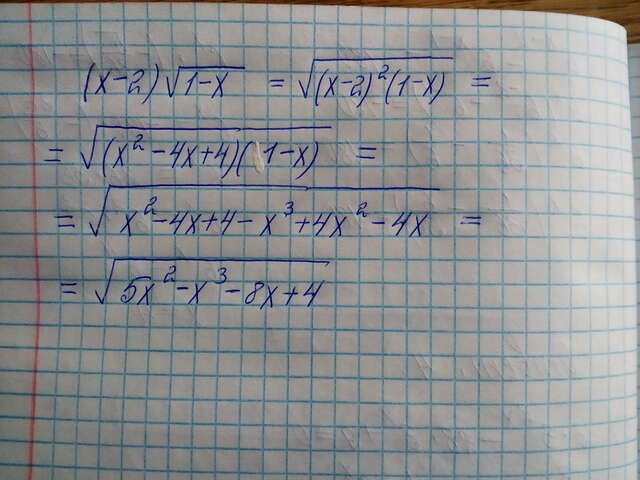 (x-2)√(1-x) = √((x-2)²(1-x)) =
= √((x²-4x+4)(1-x)) =
= √(x²-4x+4-x³+4x²-4x) =
= √(5x²-x³-8x+4)